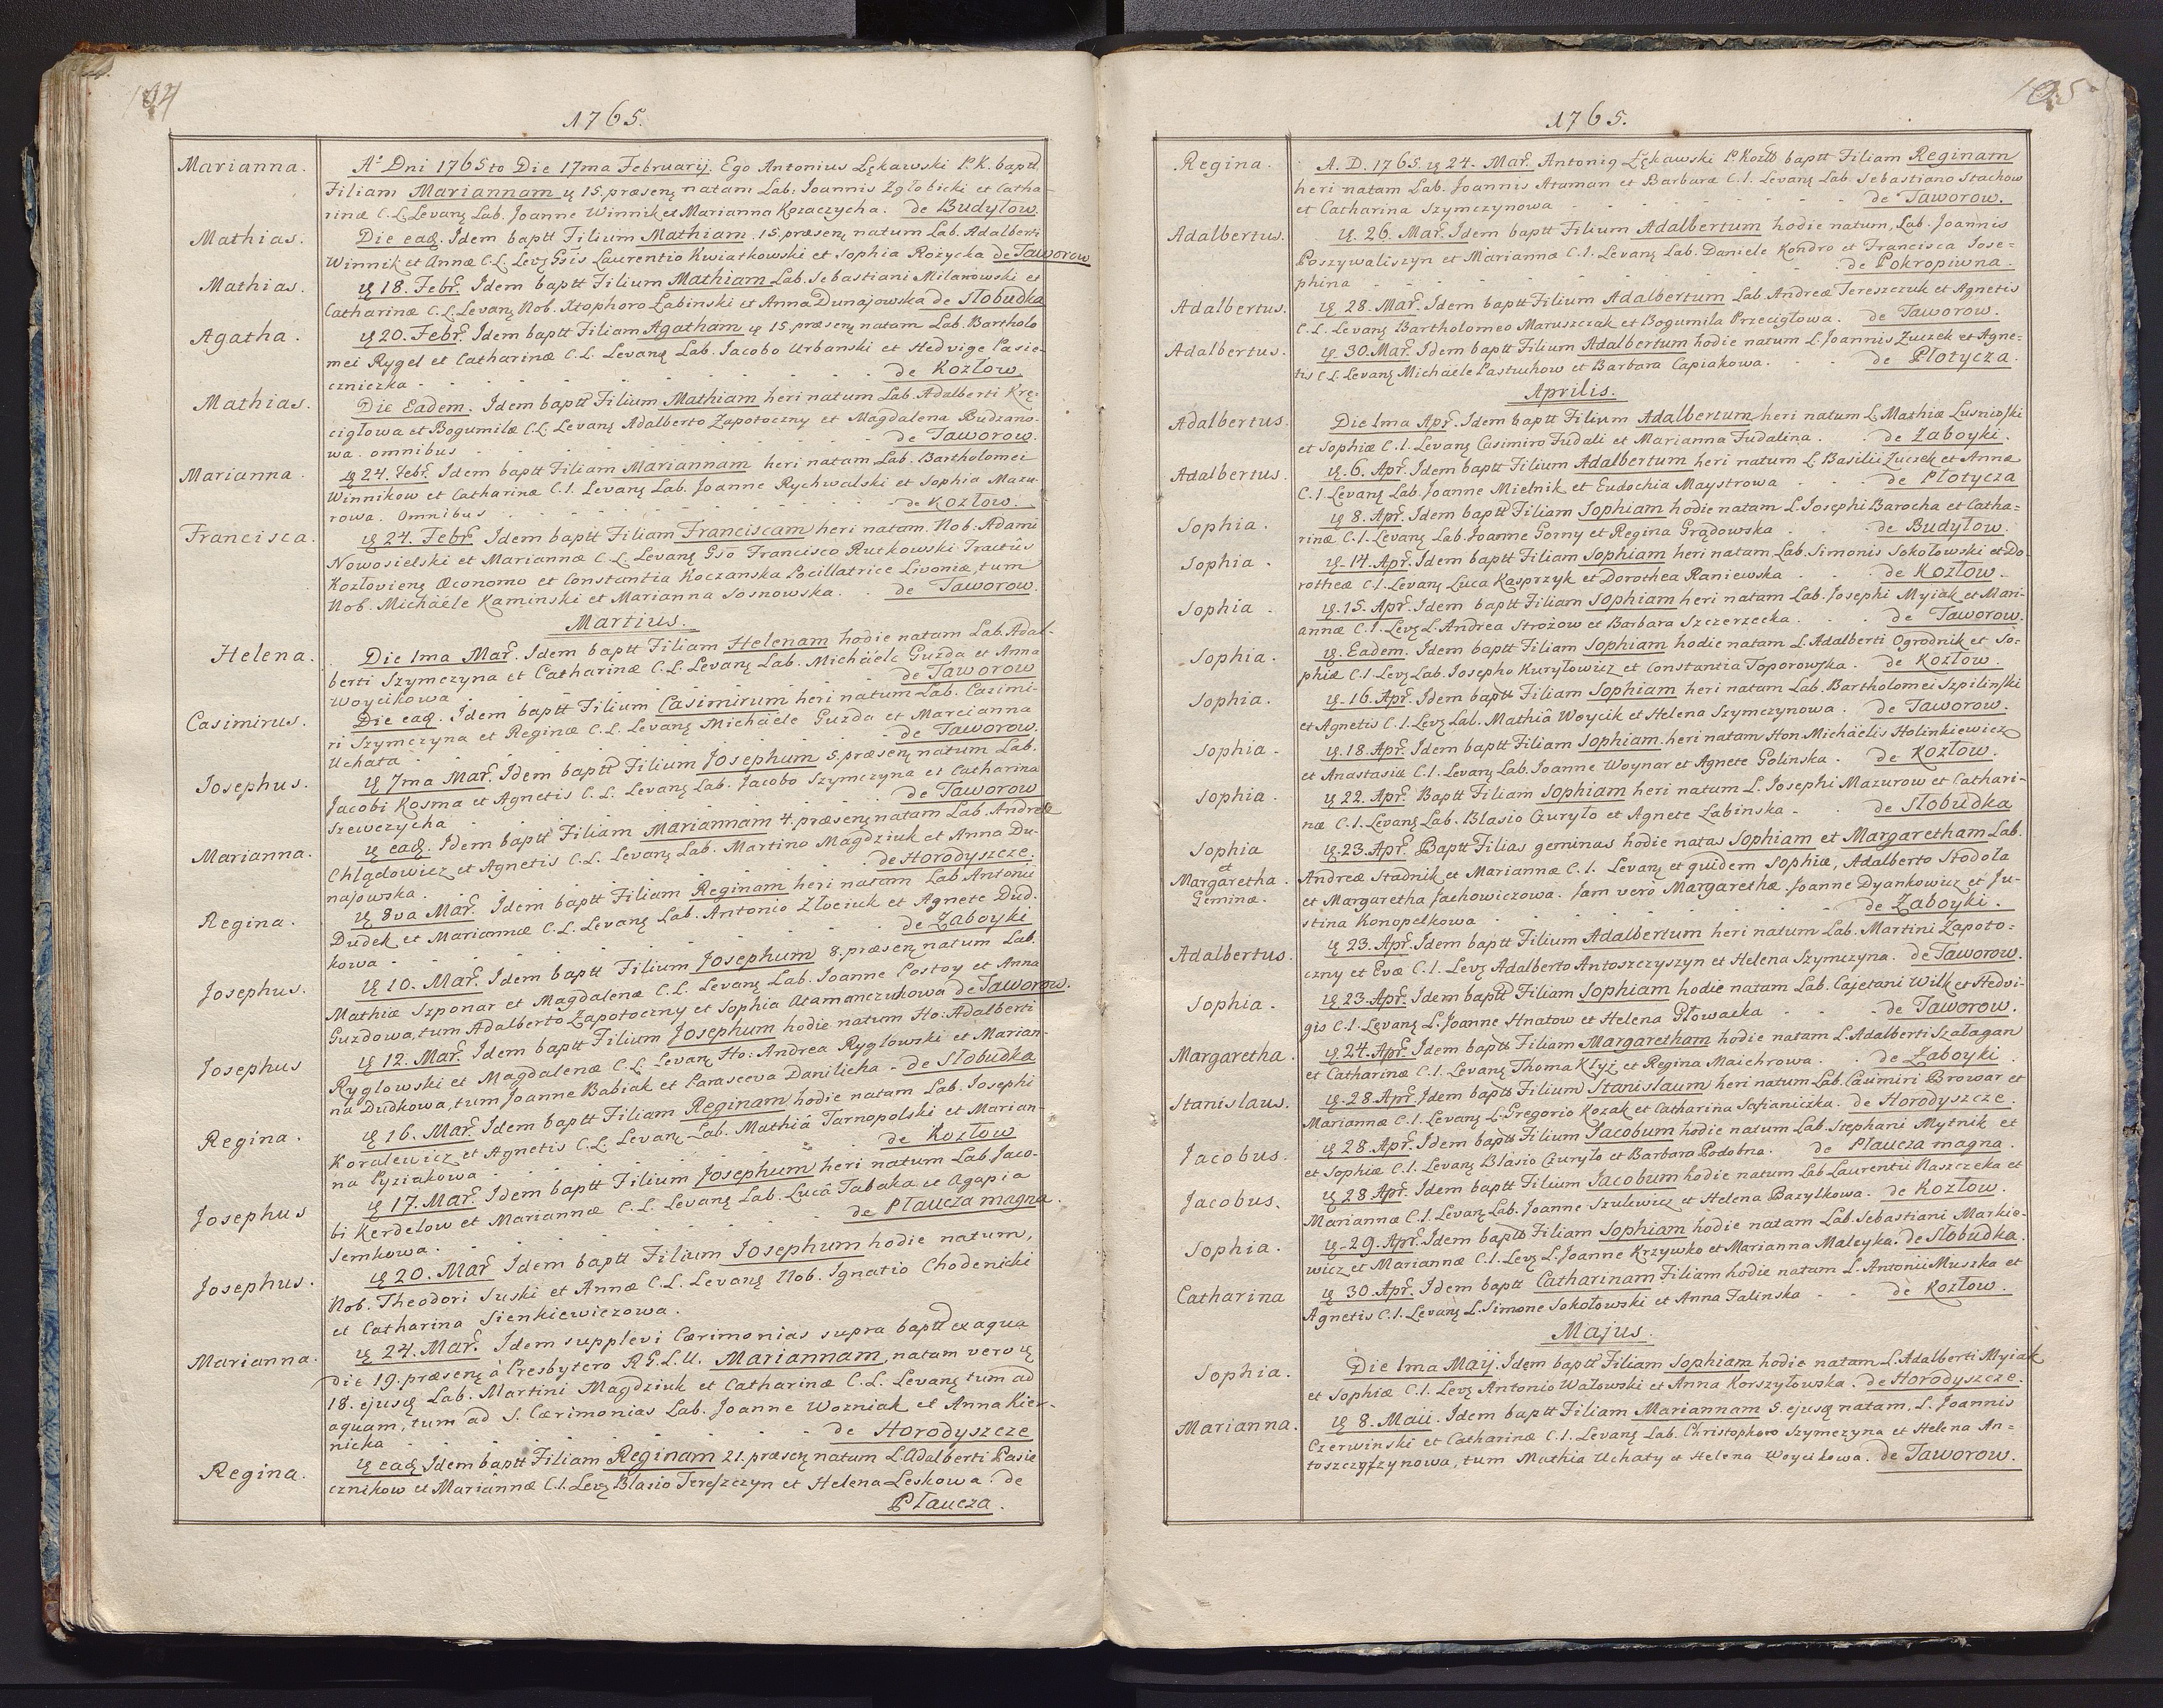 104
1765.
Marianna.
Aº Dni 1765to Die 17ma Februarij. Ego Antonius Lękawski P.K. baptt
Filiam Mariannam ꝗ 15. præsenꝫ natam Lab: Joannis Zgłobicki et Catha-
rinæ C.L. Levanꝫ Lab. Joanne Winnik et Marianna Kozaczycha. de Budyłow.
Mathias.
Die eadꝫ. Idem baptt Filium Mathiam 15. præsenꝫ natum Lab. Adalberti
Winnik et Annæ C.L. Levꝫ Gsis Laurentio Kwiatkowski et Sophia Rożycka de Taworow
Mathias.
ꝗ 18. Febr. Idem baptt Filium Mathiam Lab. Sebastiani Milanowski et
Catharinæ C.L. Levanꝫ Nob. Xtophoro Łabinski et Anna Dunajowska de Słobudka
Agatha.
ꝗ 20. Febr. Idem baptt Filiam Agatham ꝗ 15 præsenꝫ natam Lab. Bartholo
mei Rygel et Catharinæ C.L. Levanꝫ Lab. Jacobo Urbanski et Hedvige Pasie-
czniczka de Kozłow.
Mathias.
Die Eadem. Idem baptt Filium Mathiam heri natum Lab. Adalberti Krę-
cigłowa et Bogumilæ C.L. Levanꝫ Adalberto Zapotoczny et Magdalena Budzano-
wa. omnibus de Taworow.
Marianna.
ꝗ 24. Febr. Idem baptt Filiam Mariannam heri natam Lab. Bartholomei
Winnikow et Catharinæ C.l. Levanꝫ Lab. Joanne Rychwalski et Sophia Mazu-
rowa. Omnibus de Kozłow.
Francisca.
ꝗ 24. Febr. Idem baptt Filiam Franciscam heri natam. Nob: Adami
Nowosielski et Mariannæ C.L. Levanꝫ Gso Francisco Rutkowski Tractûs
Kozłovienꝫ Œconomo et Constantia Koczanska Pocillatrice Livoniæ, tum
Nob. Michäele Kaminski et Marianna Sosnowska. de Taworow.
Martius.
Helena.
Die 1ma Mar. Idem baptt Filiam Helenam hodie natam Lab. Adal-
berti Szymczyna et Catharinæ C.L. Levanꝫ Lab. Michäele Guzda et Anna
Woycikowa de Taworow
Casimirus.
Die eadꝫ. Idem baptt Filium Casimirum heri natum Lab. Casimi-
ri Szymczyna et Reginæ C.L. Levanꝫ Michäele Guzda et Marcianna
Uchata de Taworow.
Josephus.
ꝗ 7ma Mar. Idem baptt Filium Josephum 5. præsenꝫ natum Lab.
Jacobi Kosma et Agnetis C.L. Levanꝫ Lab. Jacobo Szymczyna et Catharina
Szewczycha de Taworow
Marianna.
ꝗ eadꝫ. Idem baptt Filiam Mariannam 4. præsenꝫ natam Lab. Andreæ
Chlądowicz et Agnetis C.L. Levanꝫ Lab. Martino Magdziuk et Anna Du-
najowska. de Horodyszcze.
Regina.
ꝗ 8va Mar. Idem baptt Filiam Reginam heri natam Lab Antonii
Dudek et Mariannæ C.L. Levanꝫ Lab. Antonio Złociuk et Agnete Dud-
kowa de Zaboyki
Josephus.
ꝗ 10. Mar. Idem baptt Filium Josephum 8. præsenꝫ natum Lab.
Mathiæ Szponar et Magdalenæ C.L. Levanꝫ Lab. Joanne Postoy et Anna
Guzdowa, tum Adalberto Zapotoczny et Sophia Atamanczukowa de Taworow.
Josephus
ꝗ 12. Mar. Idem baptt Filium Josephum hodie natum Ho: Adalberti
Ryglowski et Magdalenæ C.L. Levanꝫ Ho: Andrea Ryglowski et Marian-
na Dudkowa, tum Joanne Babiak et Parasceva Danilicha - de Słobudka
Regina.
ꝗ 16. Mar. Idem baptt Filiam Reginam hodie natam Lab. Josephi
Koralewicz et Agnetis C.L. Levanꝫ Lab. Mathiâ Tarnopolski et Marian-
na Pyziakowa de Kozłow
Josephus
ꝗ 17. Mar. Idem baptt Filium Josephum heri natum Lab. Jaco-
bi Kerdelow et Mariannæ C.L. Levanꝫ Lab. Lucâ Tabaka et Agapia
Semkowa. de Płaucza magna.
Josephus.
ꝗ 20. Mar Idem baptt Filium Josephum hodie natum,
Nob. Theodori Suski et Annæ C.L. Levanꝫ Nob. Ignatio Chodenicki
et Catharina Sienkiewiczowa.
Marianna.
ꝗ 24. Mar. Idem supplevi Cærimonias supra baptt ex aqua
die 19. præsenꝫ à Presbytero R.G.L.U. Mariannam, natam vero ꝗ
18. ejusdꝫ Lab. Martini Magdziuk et Catharinæ C.L. Levanꝫ tum ad
aquam, tum ad S. Cærimonias Lab. Joanne Wozniak et Anna Kier-
nicka de Horodyszcze
Regina.
ꝗ eadꝫ Idem baptt Filiam Reginam 21. præsenꝫ natum L. Adalberti Pasie
cznikow et Mariannæ C.l. Levꝫ Blasio Tereszczyn et Helena Leskowa. de
Płaucza.
105
1765.
Regina.
A.D. 1765. ꝗ 24. Mar. Antoniꝯ Lękawski P. Kozło baptt Filiam Reginam
heri natam Lab. Joannis Ataman et Barbaræ C.l. Levanꝫ Lab Sebastiano Stachow
et Catharina Szymczynowa de Taworow.
Adalbertus.
ꝗ. 26. Mar. Idem baptt Filium Adalbertum hodie natum, Lab. Joannis
Poszywaliszyn et Mariannæ C.l. Levanꝫ Lab. Daniele Kondro et Francisca Jose-
phina de Pokropiwna.
Adalbertus.
ꝗ. 28. Mar. Idem baptt Filium Adalbertum Lab. Andreæ Tereszczuk et Agnetis
C.L. Levanꝫ Bartholomeo Maruszczak et Bogumila Przecigłowa. de Taworow.
Adalbertus.
ꝗ. 30. Mar. Idem baptt Filium Adalbertum hodie natum L. Joannis Zuczek et Agne-
tis C.L. Levanꝫ Michaele Pastuchow et Barbara Capiakowa. de Płotycza.
Aprilis.
Adalbertus.
Die 1ma Apr. Idem baptt Filium Adalbertum heri natum L. Mathiæ Lusnioski
et Sophiæ C.l. Levanꝫ Casimiro Fudali et Marianna Fudalina. de Zaboyki.
Adalbertus.
ꝗ. 6. Apr. Idem baptt Filium Adalbertum heri natum L. Basilii Zuczek et Annæ
C.l Levanꝫ Lab. Joanne Mielnik et Eudochia Maystrowa de Płotycza
Sophia.
ꝗ 8. Apr. Idem baptt Filiam Sophiam hodie natam L. Josephi Barocha et Catha-
rinæ C.l. Levanꝫ Lab. Joanne Gorny et Regina Grądowska de Budyłow.
Sophia.
ꝗ. 14. Apr. Idem baptt Filiam Sophiam heri natam Lab. Simonis Sokołowski et Do-
rotheæ C.l. Levanꝫ Luca Kasprzyk et Dorothea Raniewska de Kozłow.
Sophia.
ꝗ. 15. Apr. Idem baptt Filiam Sophiam heri natam Lab. Josephi Myiak et Mari-
annæ C.l. Levꝫ L. Andrea Strożow et Barbara Szczerzecka. de Taworow.
Sophia.
ꝗ. Eadem. Idem baptt Filiam Sophiam hodie natam L. Adalberti Ogrodnik et So-
phiæ C.l Levꝫ Lab. Josepho Kuryłowicz et Constantia Toporowska. de Kozłow.
Sophia.
ꝗ. 16. Apr. Idem baptt Filiam Sophiam heri natam Lab. Bartholomei Szpilinski
et Agnetis C.l. Levꝫ Lab. Mathiâ Woycik et Helena Szymczynowa. de Taworow.
Sophia.
ꝗ. 18. Apr. Idem baptt Filiam Sophiam heri natam Hon. Michäelis Holinkiewicz
et Anastasiæ C.l. Levanꝫ Lab. Joanne Woynar et Agnete Golinska. de Kozłow.
Sophia.
ꝗ 22. Apr. Baptt Filiam Sophiam heri natum L. Josephi Mazurow et Cathari-
næ C.l. Levanꝫ Lab. Blasio Guryło et Agnete Łabinska. de Słobudka
Sophia
et
Margaretha.
Geminæ.
ꝗ. 23. Apr. Baptt Filias geminas hodie natas Sophiam et Margaretham Lab.
Andreæ Stadnik et Mariannæ C.l. Levanꝫ et quidem Sophiæ, Adalberto Stodoła
et Margaretha Jachowiczowa. Jam verò Margarethæ. Joanne Dyankowicz et Ju-
stina Konopelkowa de Zaboyki.
Adalbertus.
ꝗ 23. Apr. Idem baptt Filium Adalbertum heri natum Lab. Martini Zapoto-
czny et Evæ C.l. Levꝫ Adalberto Antoszczyszyn et Helena Szymczyna. de Taworow.
Sophia.
ꝗ 23. Apr. Idem baptt Filiam Sophiam hodie natam Lab. Cajetani Wilk et Hedvi-
gis C.l. Levanꝫ L. Joanne Hnatow et Helena Głowacka de Taworow.
Margaretha.
ꝗ. 24. Apr. Idem baptt Filiam Margaretham hodie natam L. Adalberti Szałagan
et Catharinæ C.l. Levanꝫ Thoma Kłyż et Regina Maichrowa. de Zaboyki.
Stanislaus.
ꝗ. 28. Apr. Idem baptt Filium Stanislaum heri natum Lab. Casimiri Browar et
Mariannæ C.l. Levanꝫ L. Gregorio Kozak et Catharina Safianiczka. de Horodyszcze.
Jacobus.
ꝗ 28. Apr. Idem baptt Filium Jacobum hodie natum Lab. Stephani Mytnik et
et Sophiæ C.l. Levanꝫ Blasio Guryło et Barbara Podobna. de Płaucza magna.
Jacobus.
ꝗ 28 Apr. Idem baptt Filium Jacobum hodie natum Lab Laurentii Naszczeka et
Mariannæ C.l. Levanꝫ Lab. Joanne Szulewicz et Helena Bazylkowa. de Kozłow.
Sophia.
ꝗ. 29. Apr. Idem baptt Filiam Sophiam hodie natam Lab. Sebastiani Markie-
wicz et Mariannæ C.l. Levꝫ L. Joanne Krzywko et Marianna Maleyka. de Słobudka.
Catharina
ꝗ 30. Apr. Idem baptt Catharinam Filiam hodie natam L. Antonii Muszka et
Agnetis C.l. Levanꝫ L. Simone Sokołowski et Anna Falinska de Kozłow.
Majus.
Sophia.
Die 1ma Maij. Idem baptt Filiam Sophiam hodie natam L. Adalberti Myiak
et Sophiæ C.l. Levꝫ Antonio Wałowski et Anna Korszyłowska. de Horodyszcze.
Marianna.
ꝗ 8. Maii. Idem baptt Filiam Mariannam 5. ejusdꝫ natam, L. Joannis
Czerwinski et Catharinæ C.l. Levanꝫ Lab. Christophoro Szymczyna et Helena An-
toszczyszynowa, tum Mathia Uchaty et Helena Woycikowa. de Taworow.